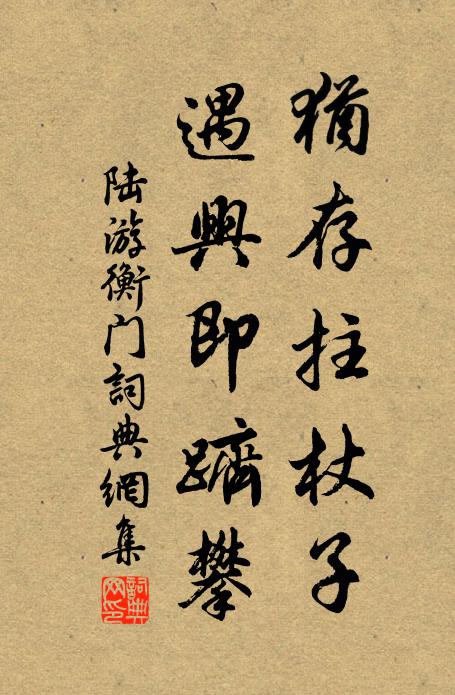 猶存拄杖子
遇興即躋攀
陸游衡门詞典網集
詞典网印